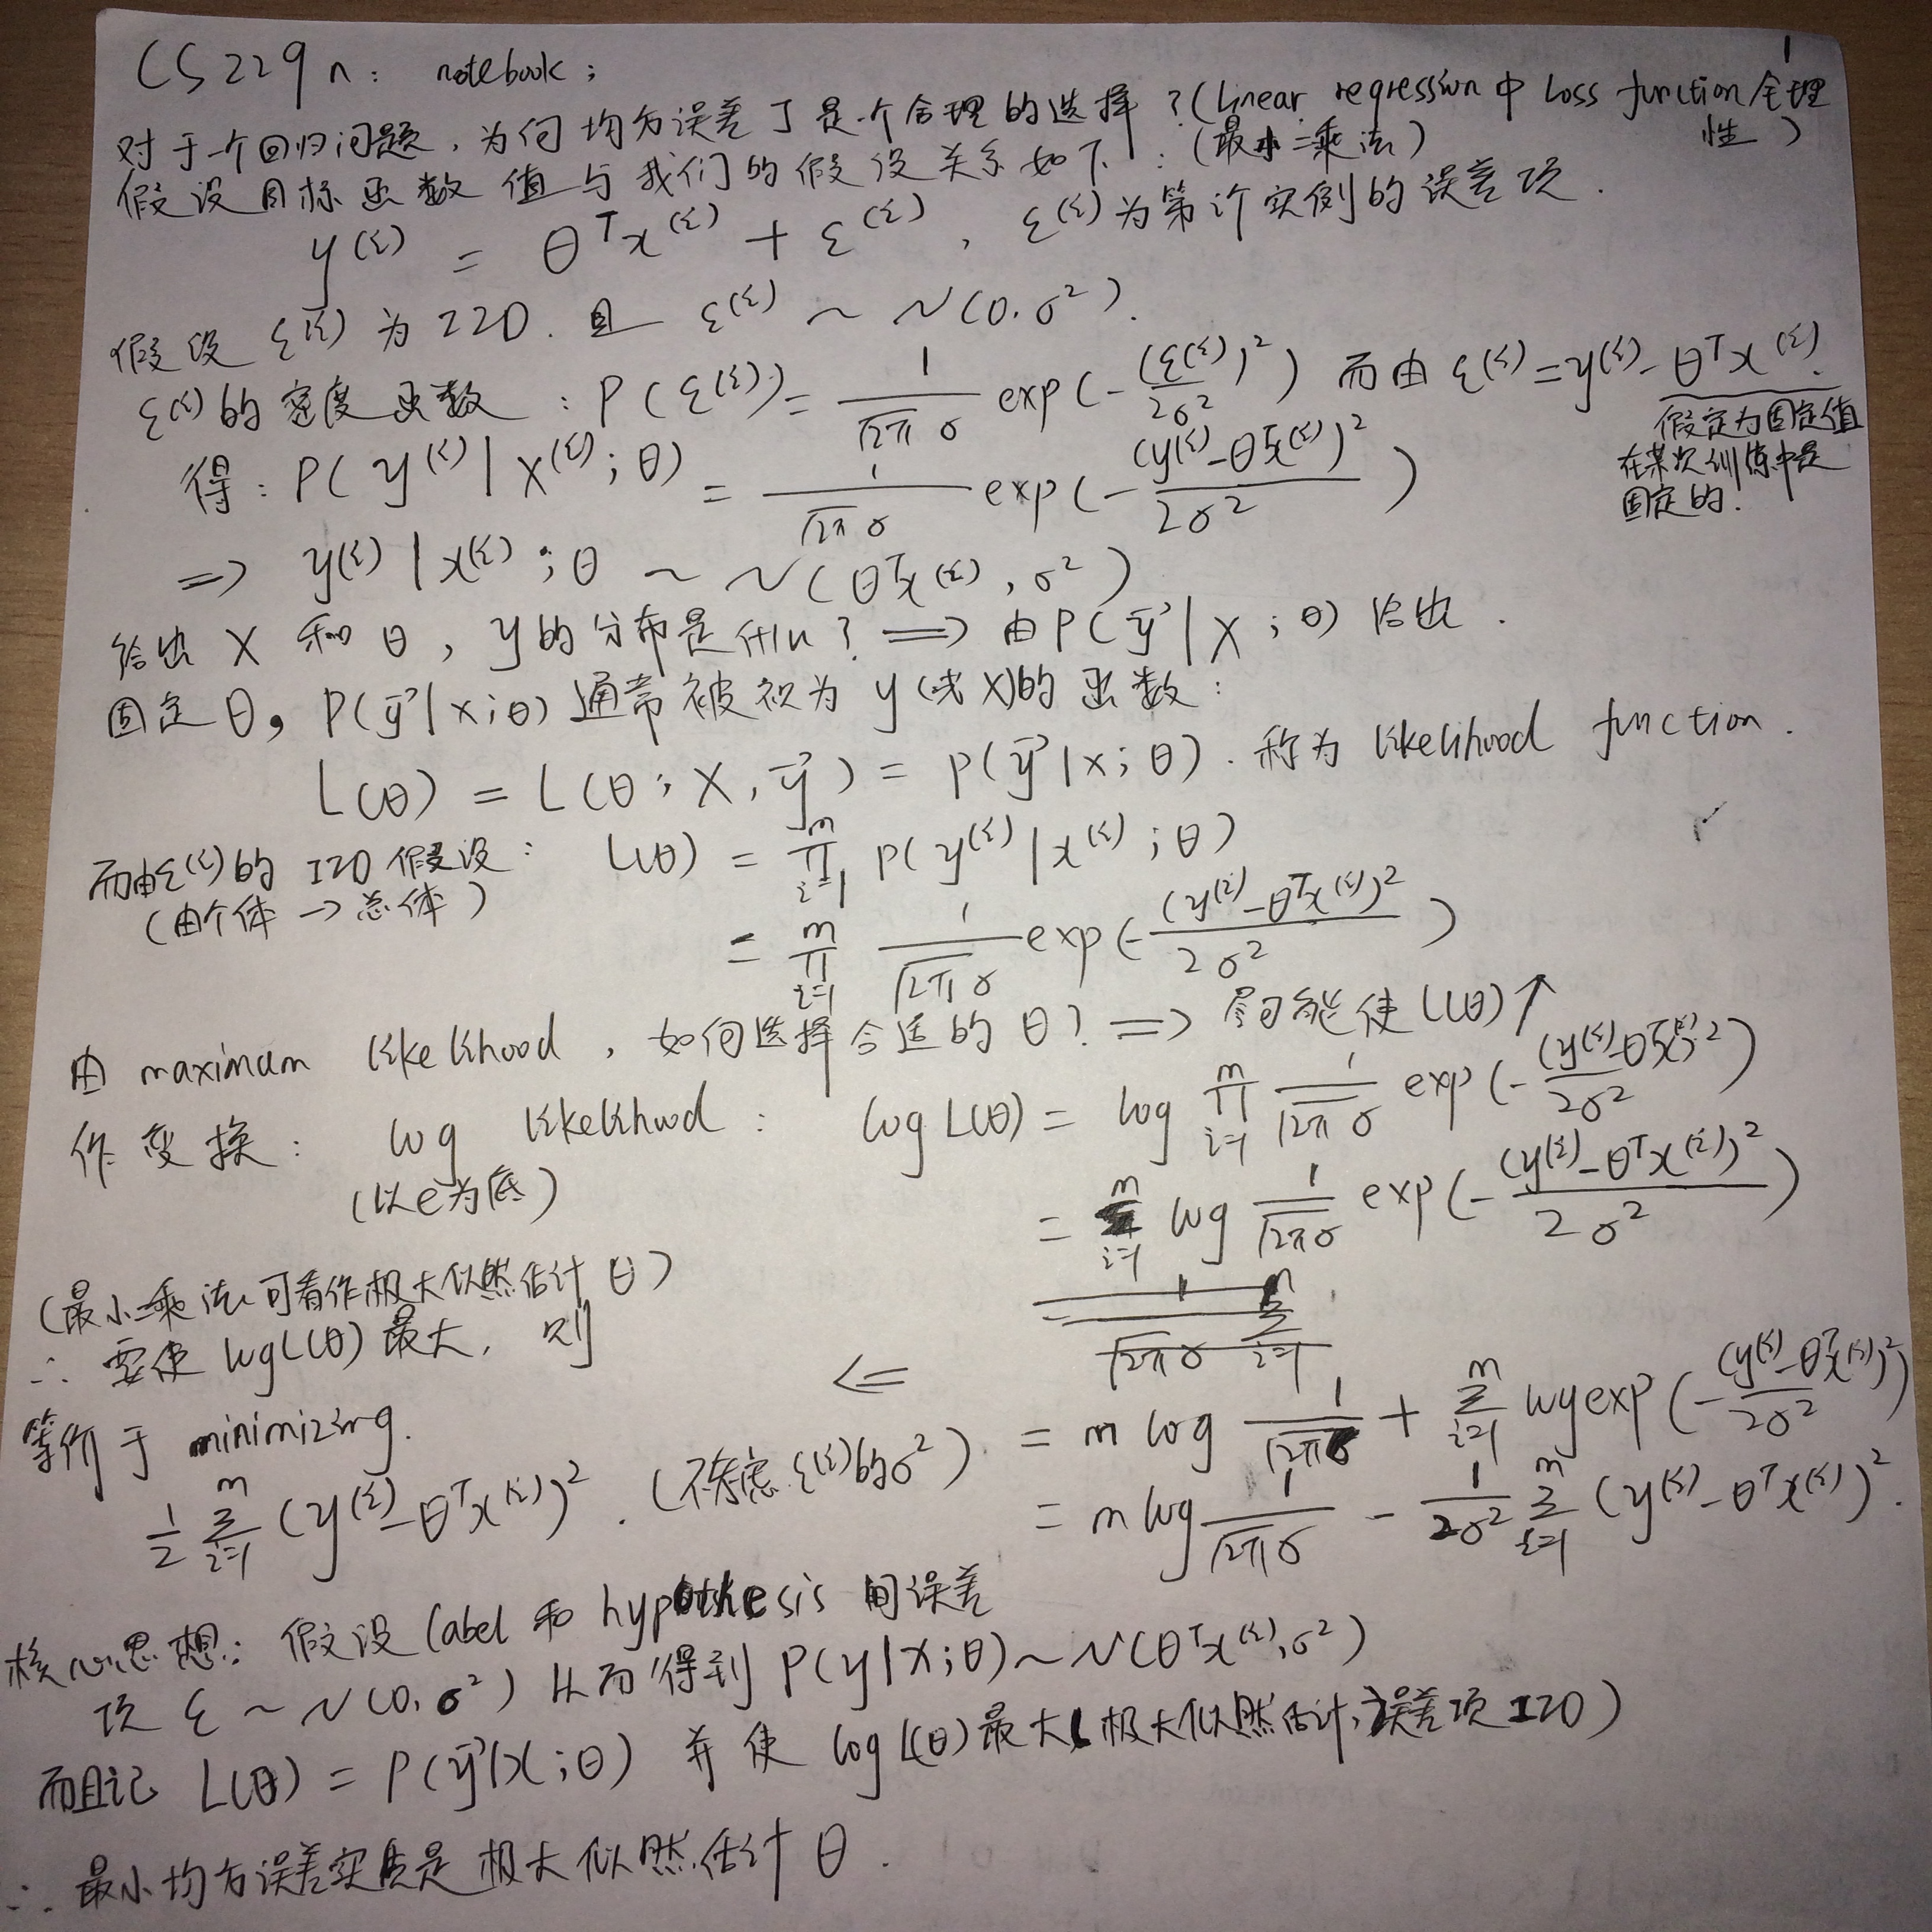 CS229n: notebook;
1
对于一个回归问题,为何均方误差J是个合理的选择?(Linear regression中Loss function合理性)
(最小二乘法)
假设目标函数值与我们的假设关系如下:
y^(i) = θ^T x^(i) + ε^(i), ε^(i)为第i个实例的误差项.
假设ε^(i)为IID.且 ε^(i) ~ N(0,σ²).
ε^(i)的密度函数: P(ε^(i)) = 1/(√2π σ) exp(-(ε^(i))²/2σ²) 而由 ε^(i) = y^(i) - θ^T x^(i).
假定为固定值
在某次训练中是
固定的!
得: P(y^(i)|x^(i);θ) = 1/(√2π σ) exp(-(y^(i)-θ^T x^(i))²/2σ²)
=> y^(i)|x^(i);θ ~ N(θ^T x^(i), σ²)
给出X和θ, y的分布是什么? => 由P(y⃗|X;θ)给出.
固定θ, P(y⃗|x;θ)通常被视为y(或X)的函数:
L(θ) = L(θ;X,y⃗) = P(y⃗|x;θ). 称为likelihood function.
而由ε^(i)的IID假设: L(θ) = ∏_{i=1}^m P(y^(i)|x^(i);θ)
(由个体→总体)
= ∏_{i=1}^m 1/(√2π σ) exp(-(y^(i)-θ^T x^(i))²/2σ²)
由maximum likelihood,如何选择合适的θ? => 尽可能使L(θ)↑
作变换: log likelihood: log L(θ) = log ∏_{i=1}^m 1/(√2π σ) exp(-(y^(i)-θ^T x^(i))²/2σ²)
(以e为底)
= ∑_{i=1}^m log 1/(√2π σ) exp(-(y^(i)-θ^T x^(i))²/2σ²)
(最小二乘法可看作极大似然估计θ)
∴要使logL(θ)最大,则 <=
= m log 1/(√2π σ) + ∑_{i=1}^m log exp(-(y^(i)-θ^T x^(i))²/2σ²)
等价于minimizing.
½ ∑_{i=1}^m (y^(i)-θ^T x^(i))². (不考虑ε^(i)的σ²)
= m log 1/(√2π σ) - 1/2σ² ∑_{i=1}^m (y^(i)-θ^T x^(i))².
核心思想: 假设label和hypothesis间误差
项 ε ~ N(0,σ²) 从而得到P(y|x;θ) ~ N(θ^T x^(i), σ²)
而且记 L(θ) = P(y⃗|X;θ) 并使 logL(θ)最大(极大似然估计,误差项IID)
∴最小均方误差实质是极大似然估计θ.